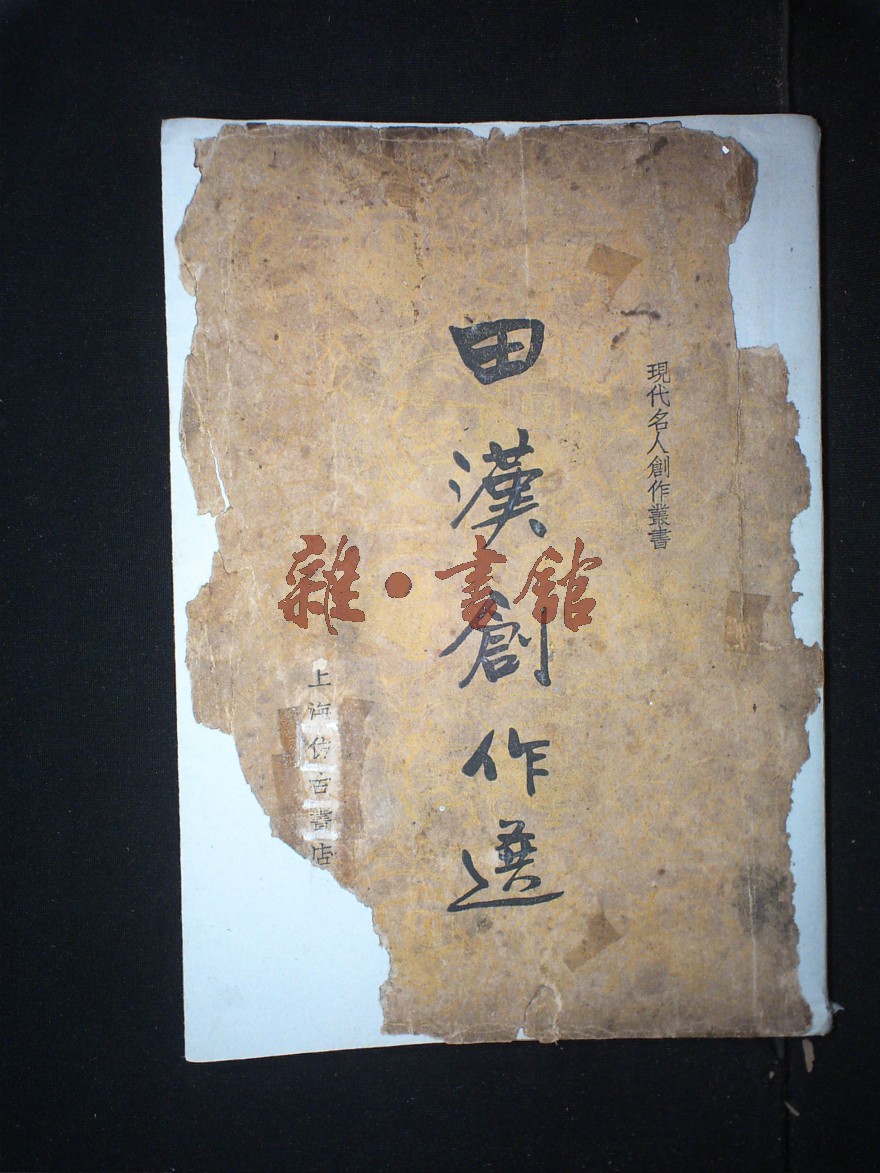 現代名人創作叢書
田漢創作選
上海仿古書店
雜·書舘